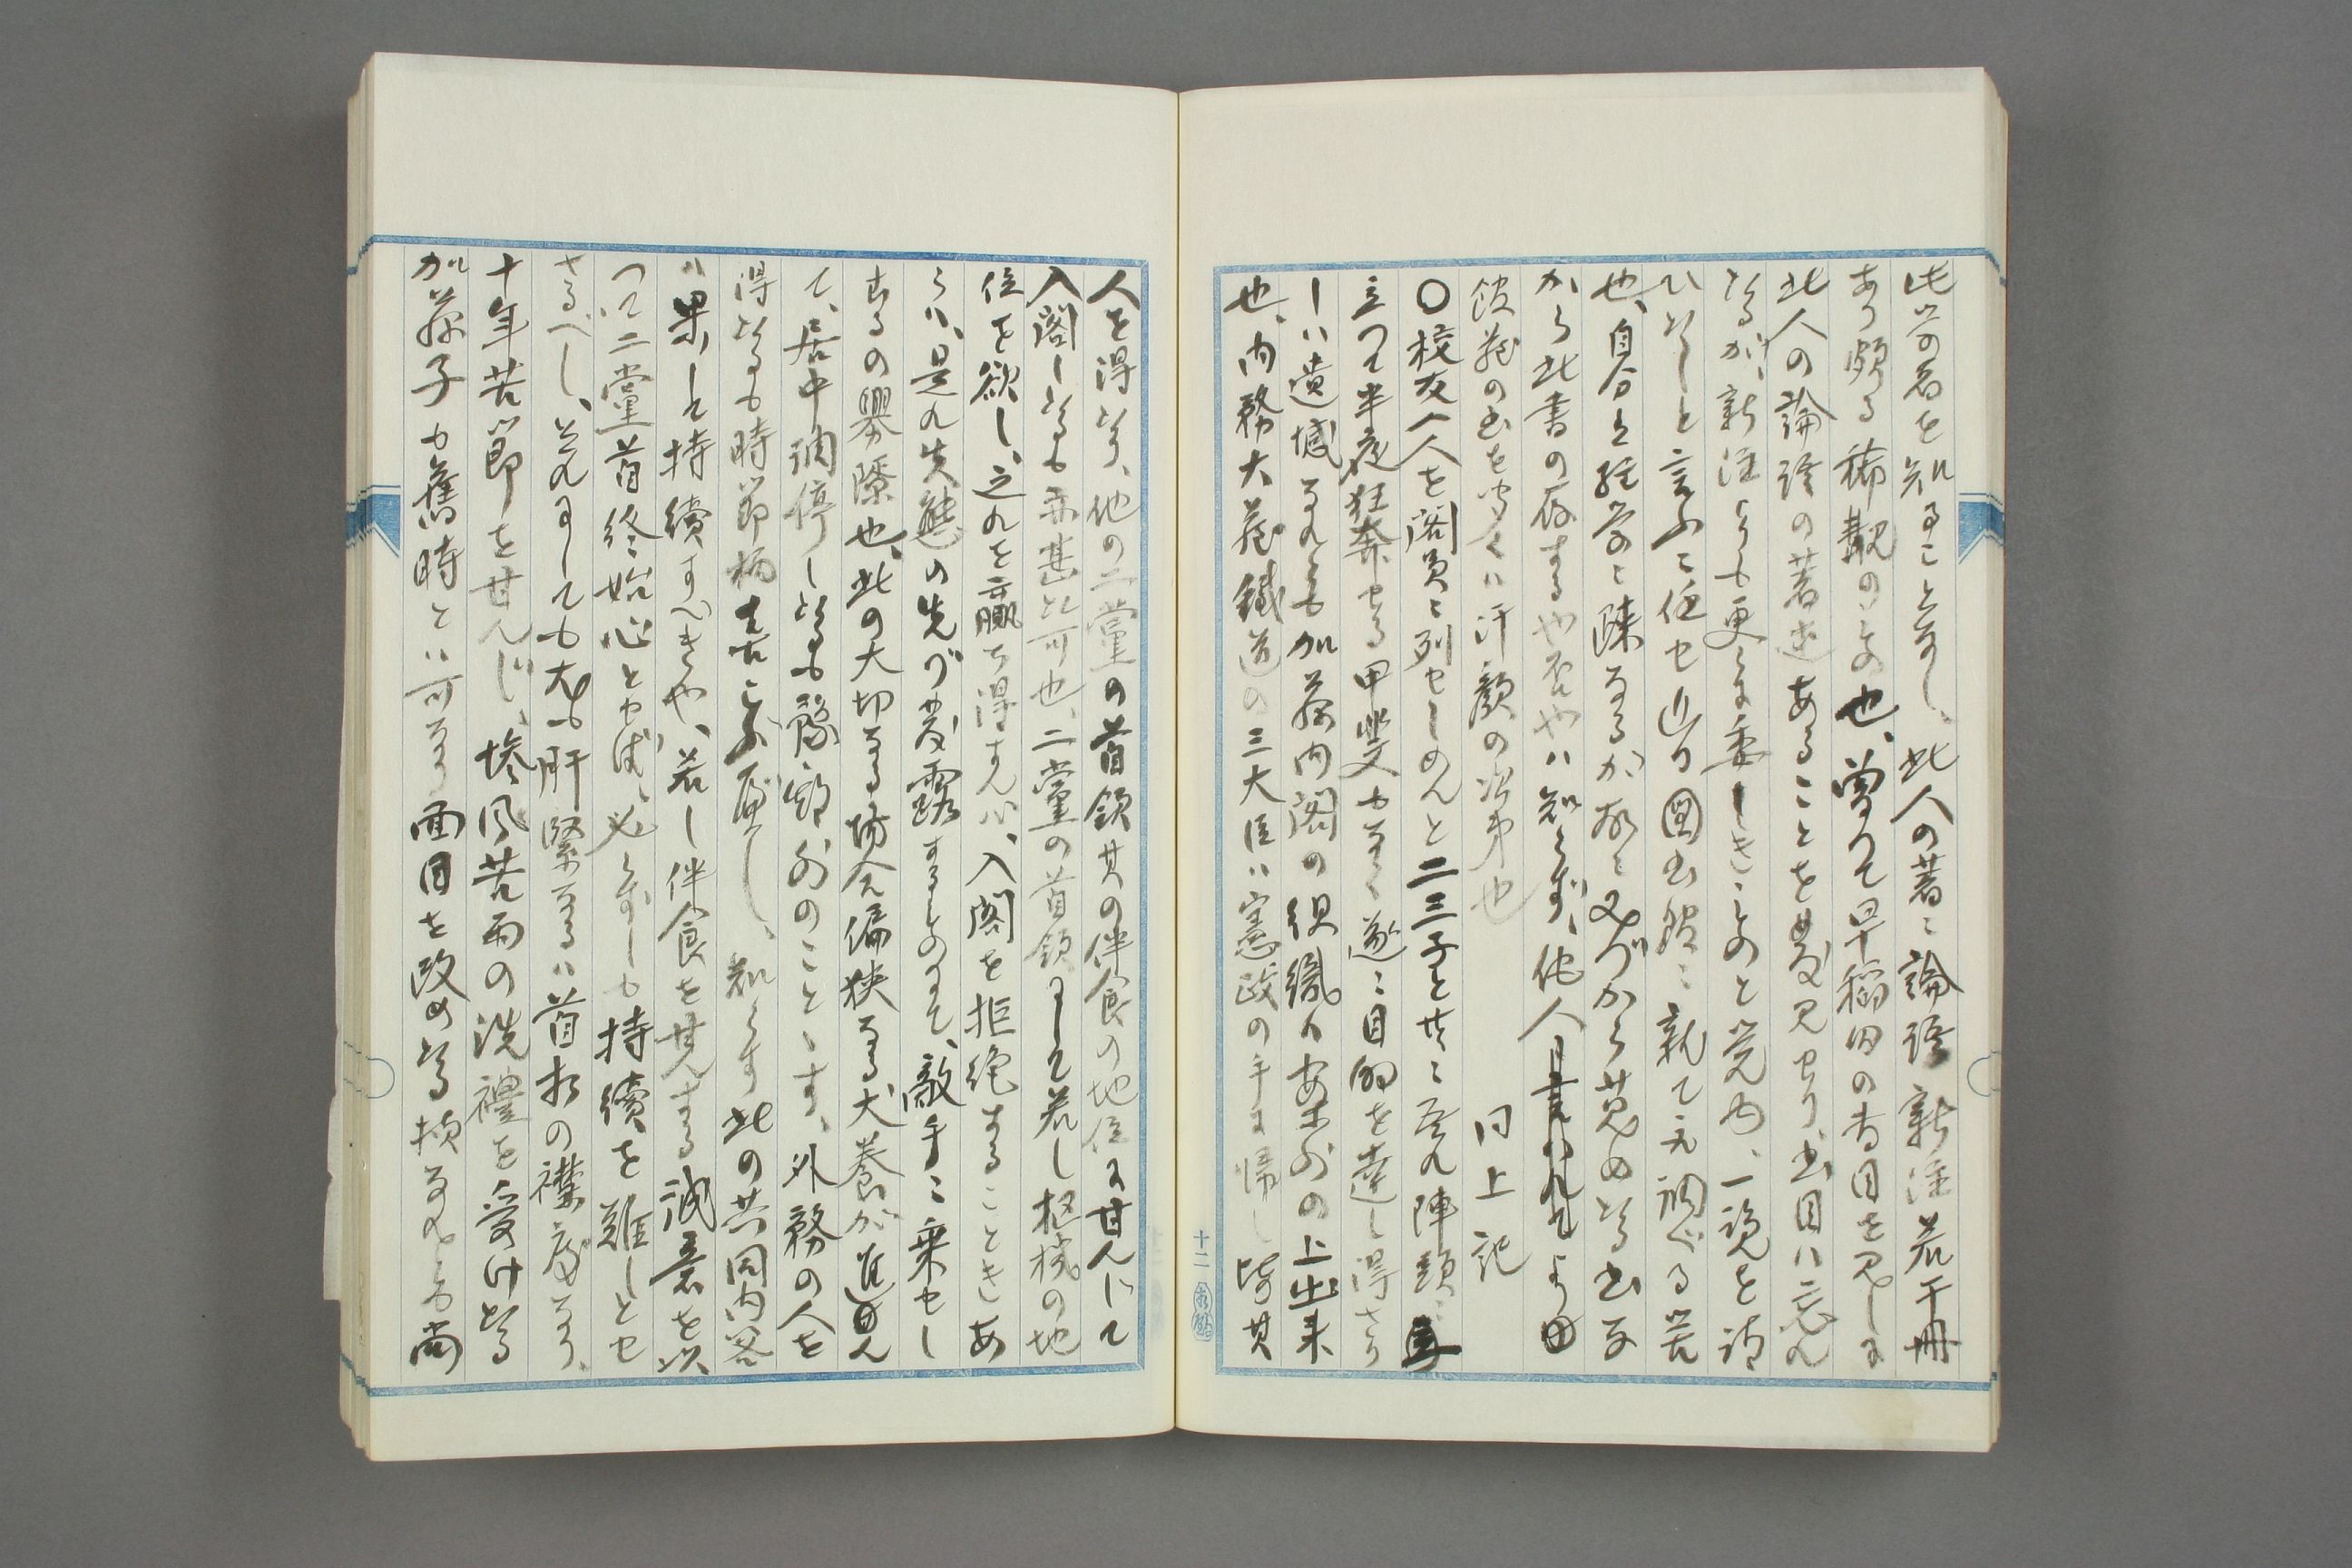 此学者を知ること無し、此人の著に論語新注若干冊
あり頗る稀覯のもの也、曽つて早稲田の書目を見しに
此人の論語の著述あることを発見せり、書目ハ忘れ
たるが、新注よりも更らに委しきものと覚ゆ、一覧を請
ひたしと言ふに任せ近日図書館に就て元調ぐる筈
也、自分は経学に疎なるが故に又づから蒐めたる書な
がら此書の存するや否や八知らず、他人に言われてより
館蔵の書を驚くハ汗顔の次第也
同上記
〇校友一人を閣員に列せしめんと二三子と共に吾れ陣頭に
立つて半夜狂奔せる甲斐もなく遂に目的を達し得さり
しハ遺憾なれども加藤内閣の組織は案外の上出来
也、内務大蔵鉄道の三大臣ハ憲政の手に帰し皆其
十二
人を得たり、他の二党の首領其の伴食の地位に甘んじて
入閣したるも亦甚た可也、二党の首領にして若し枢機の地
位を欲し、之れを贏ち得すんバ、入閣を拒絶することきあ
らハ、是れ失態の先づ発露するものにて、敵手に乗せし
むるの釁隙也、此の大切なる場合偏狭なる犬養が進ん
で、居中調停したるも予期外のことゝす、外務の人を
得たるも時節柄喜ふ可し、知らす此の共同内閣
ハ果して持続すべきや、若し伴食を甘んする誠意を以
つて二党首終始心とせば、必らずしも持続を難しとせ
さるべし、それにしても尤も肝緊なるハ首相の襟度なり、
十年苦節を甘んじ、惨風苦雨の洗礼を受けたる
加藤子も旧時とハ可なり面目を改めたる様なるも尚